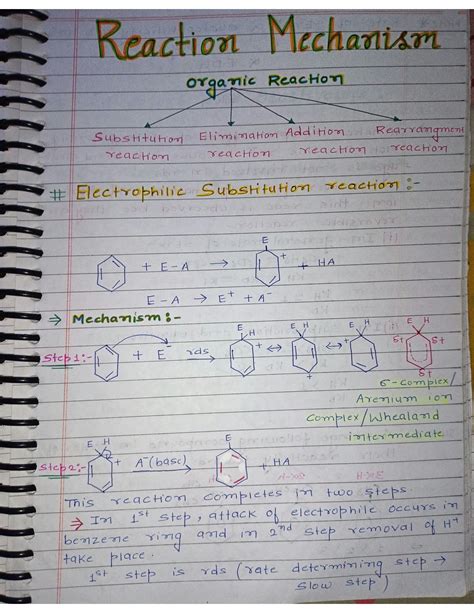 Reaction Mechanism
Organic Reaction
Substitution Elimination Addition Rearrangment
reaction reaction reaction reaction
# Electrophilic Substitution reaction :-
E
+ E-A → + + HA
E-A → E⁺ + A⁻
→ Mechanism :-
E H E H E H E H
Step 1:- + E⁻ rds → + ↔ + ↔ + δ+ δ+ δ+
σ-complex/
Arenium ion
complex/Whealand
intermediate
E H E
Step 2:- + A⁻(base) → + HA
This reaction completes in two steps.
⇒ In 1st step, attack of electrophile occurs in
benzene ring and in 2nd step removal of H⁺
take place.
1st step is rds (rate determining step →
slow step)